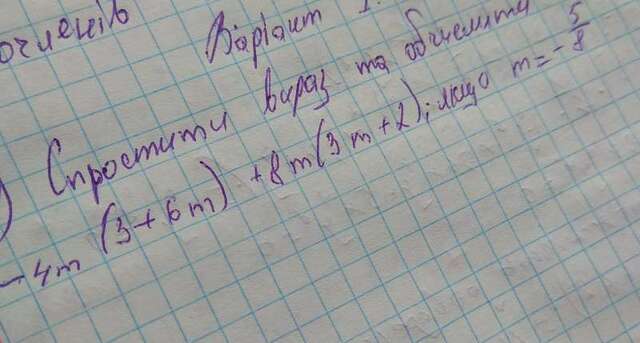 очленів
Варіант 1.
) Спростити вираз та обчислити
-4m (3+6m) +8m(3m+2); якщо m=-5/8